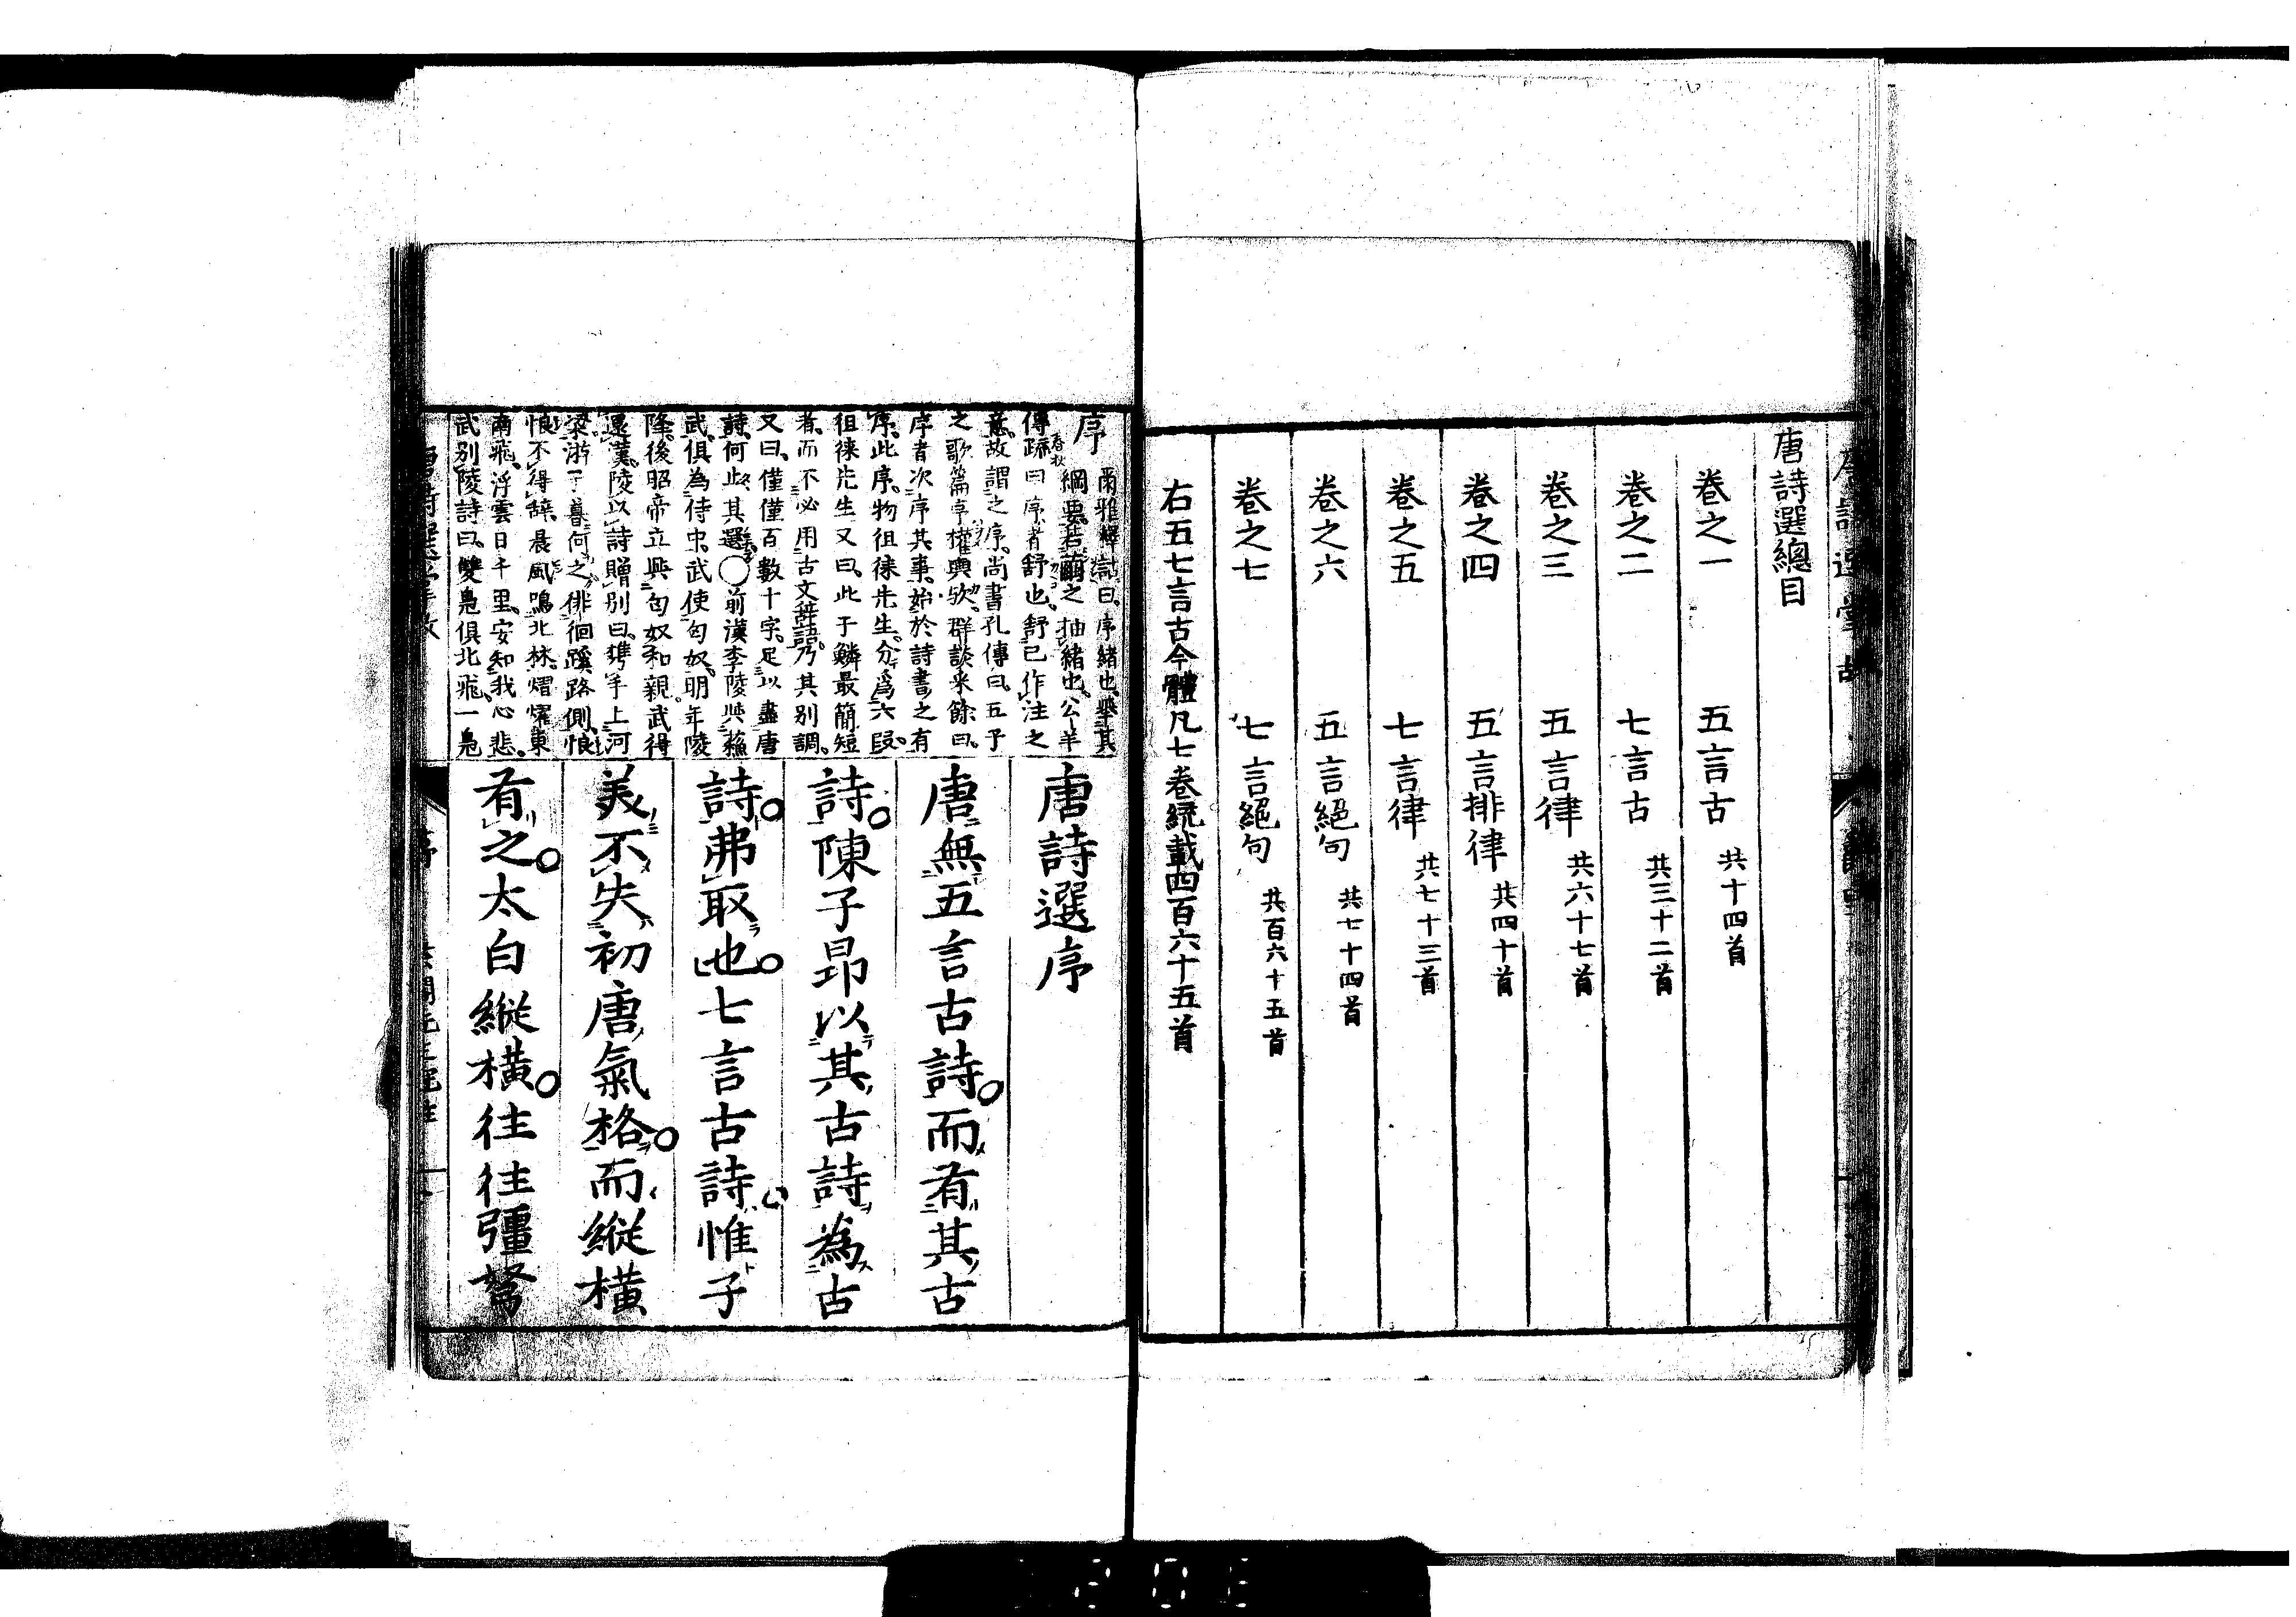 唐詩選掌故
唐詩選總目
卷之一 五言古 共十四首
卷之二 七言古 共三十二首
卷之三 五言律 共六十七首
卷之四 五言排律 共四十首
卷之五 七言律 共七十三首
卷之六 五言絕句 共七十四首
卷之七 七言絕句 共百六十五首
右五七言古今體凡七卷統載四百六十五首
序 爾雅釋詁曰序緒也舉其
綱要若繭之抽緒也公羊
傳疏曰序者舒也舒已作注之
春秋
意故謂之序尚書孔傳曰五子
之歌篇序權輿歟群談采餘曰
序者次序其事始於詩書之有
序此序物徂徠先生分爲六段
徂徠先生又曰此于鱗最簡短
者而不必用古文辭語乃其別調
又曰僅僅百數十字足以盡唐
詩何此其選◯前漢李陵與蘇
武俱為侍中武使匈奴明年陵
降後昭帝立與匈奴和親武得
還漢陵以詩贈別曰攜手上河
梁游子暮何之徘徊蹊路側悢
悢不得辭晨風鳴北林熠燿東
南飛浮雲日千里安知我心悲
武別陵詩曰雙鳧俱北飛一鳧
唐詩選序
唐無五言古詩而有其古
詩陳子昂以其古詩為古
詩弗取也七言古詩惟子
美不失初唐氣格而縱橫
有之太白縱橫往往彊弩
序